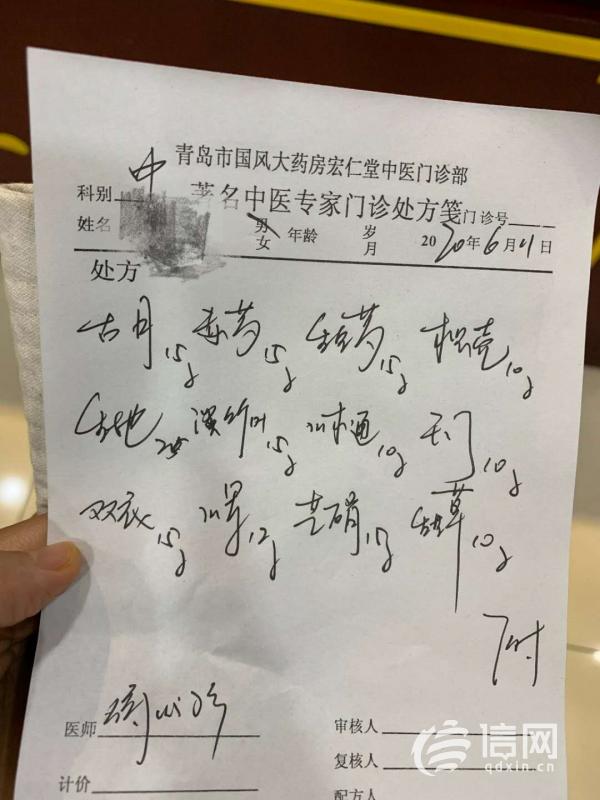 青岛市国风大药房宏仁堂中医门诊部
科别 中 著名中医专家门诊处方笺 门诊号
姓名 男 女 年龄 岁 月 2020年6月 日
处方
15g 赤芍15g 芍15g 枳壳10g
生地 淡竹叶15g 川木通10g 10g
双衣15g 川军12g 芒硝15g 草10g
7付
医师
审核人
复核人
计价
配方人
信网
qdxin.cn